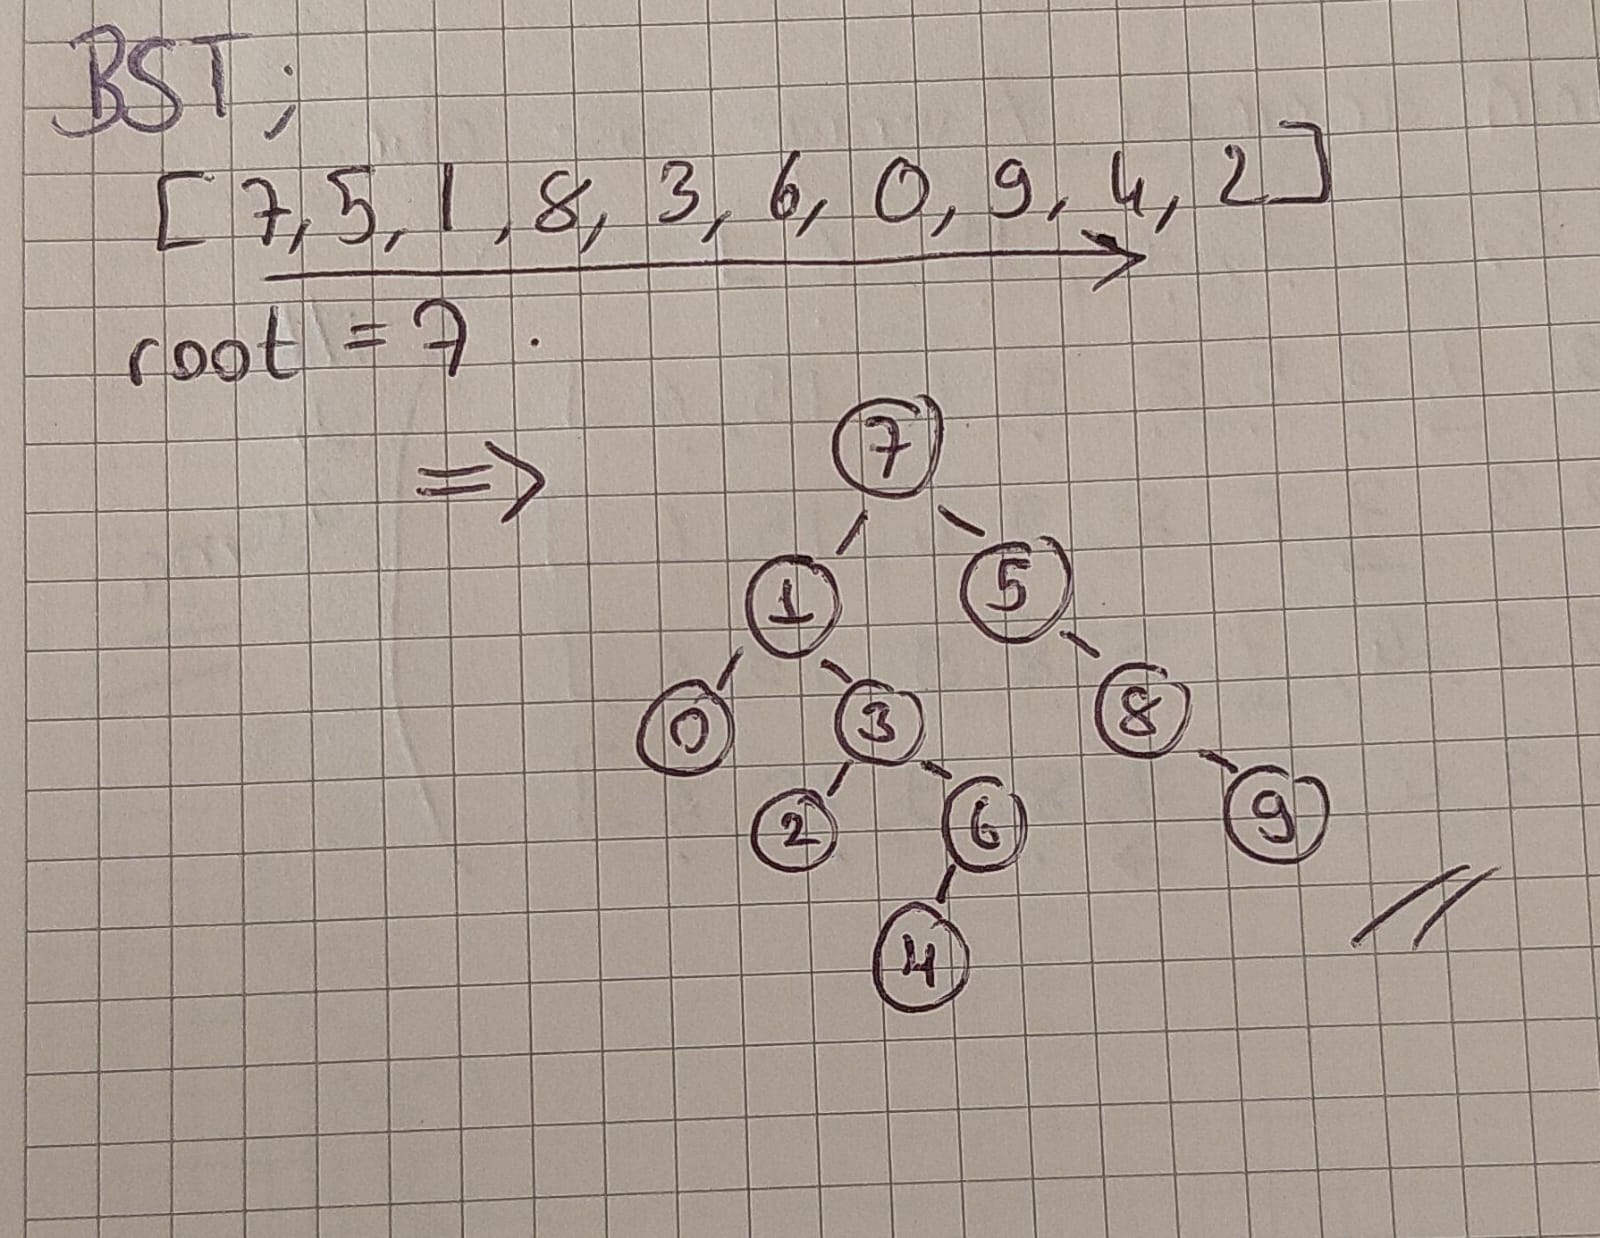 BST;
[7, 5, 1, 8, 3, 6, 0, 9, 4, 2]
root = 7.
=>
7
1 5
0 3 8
2 6 9
4